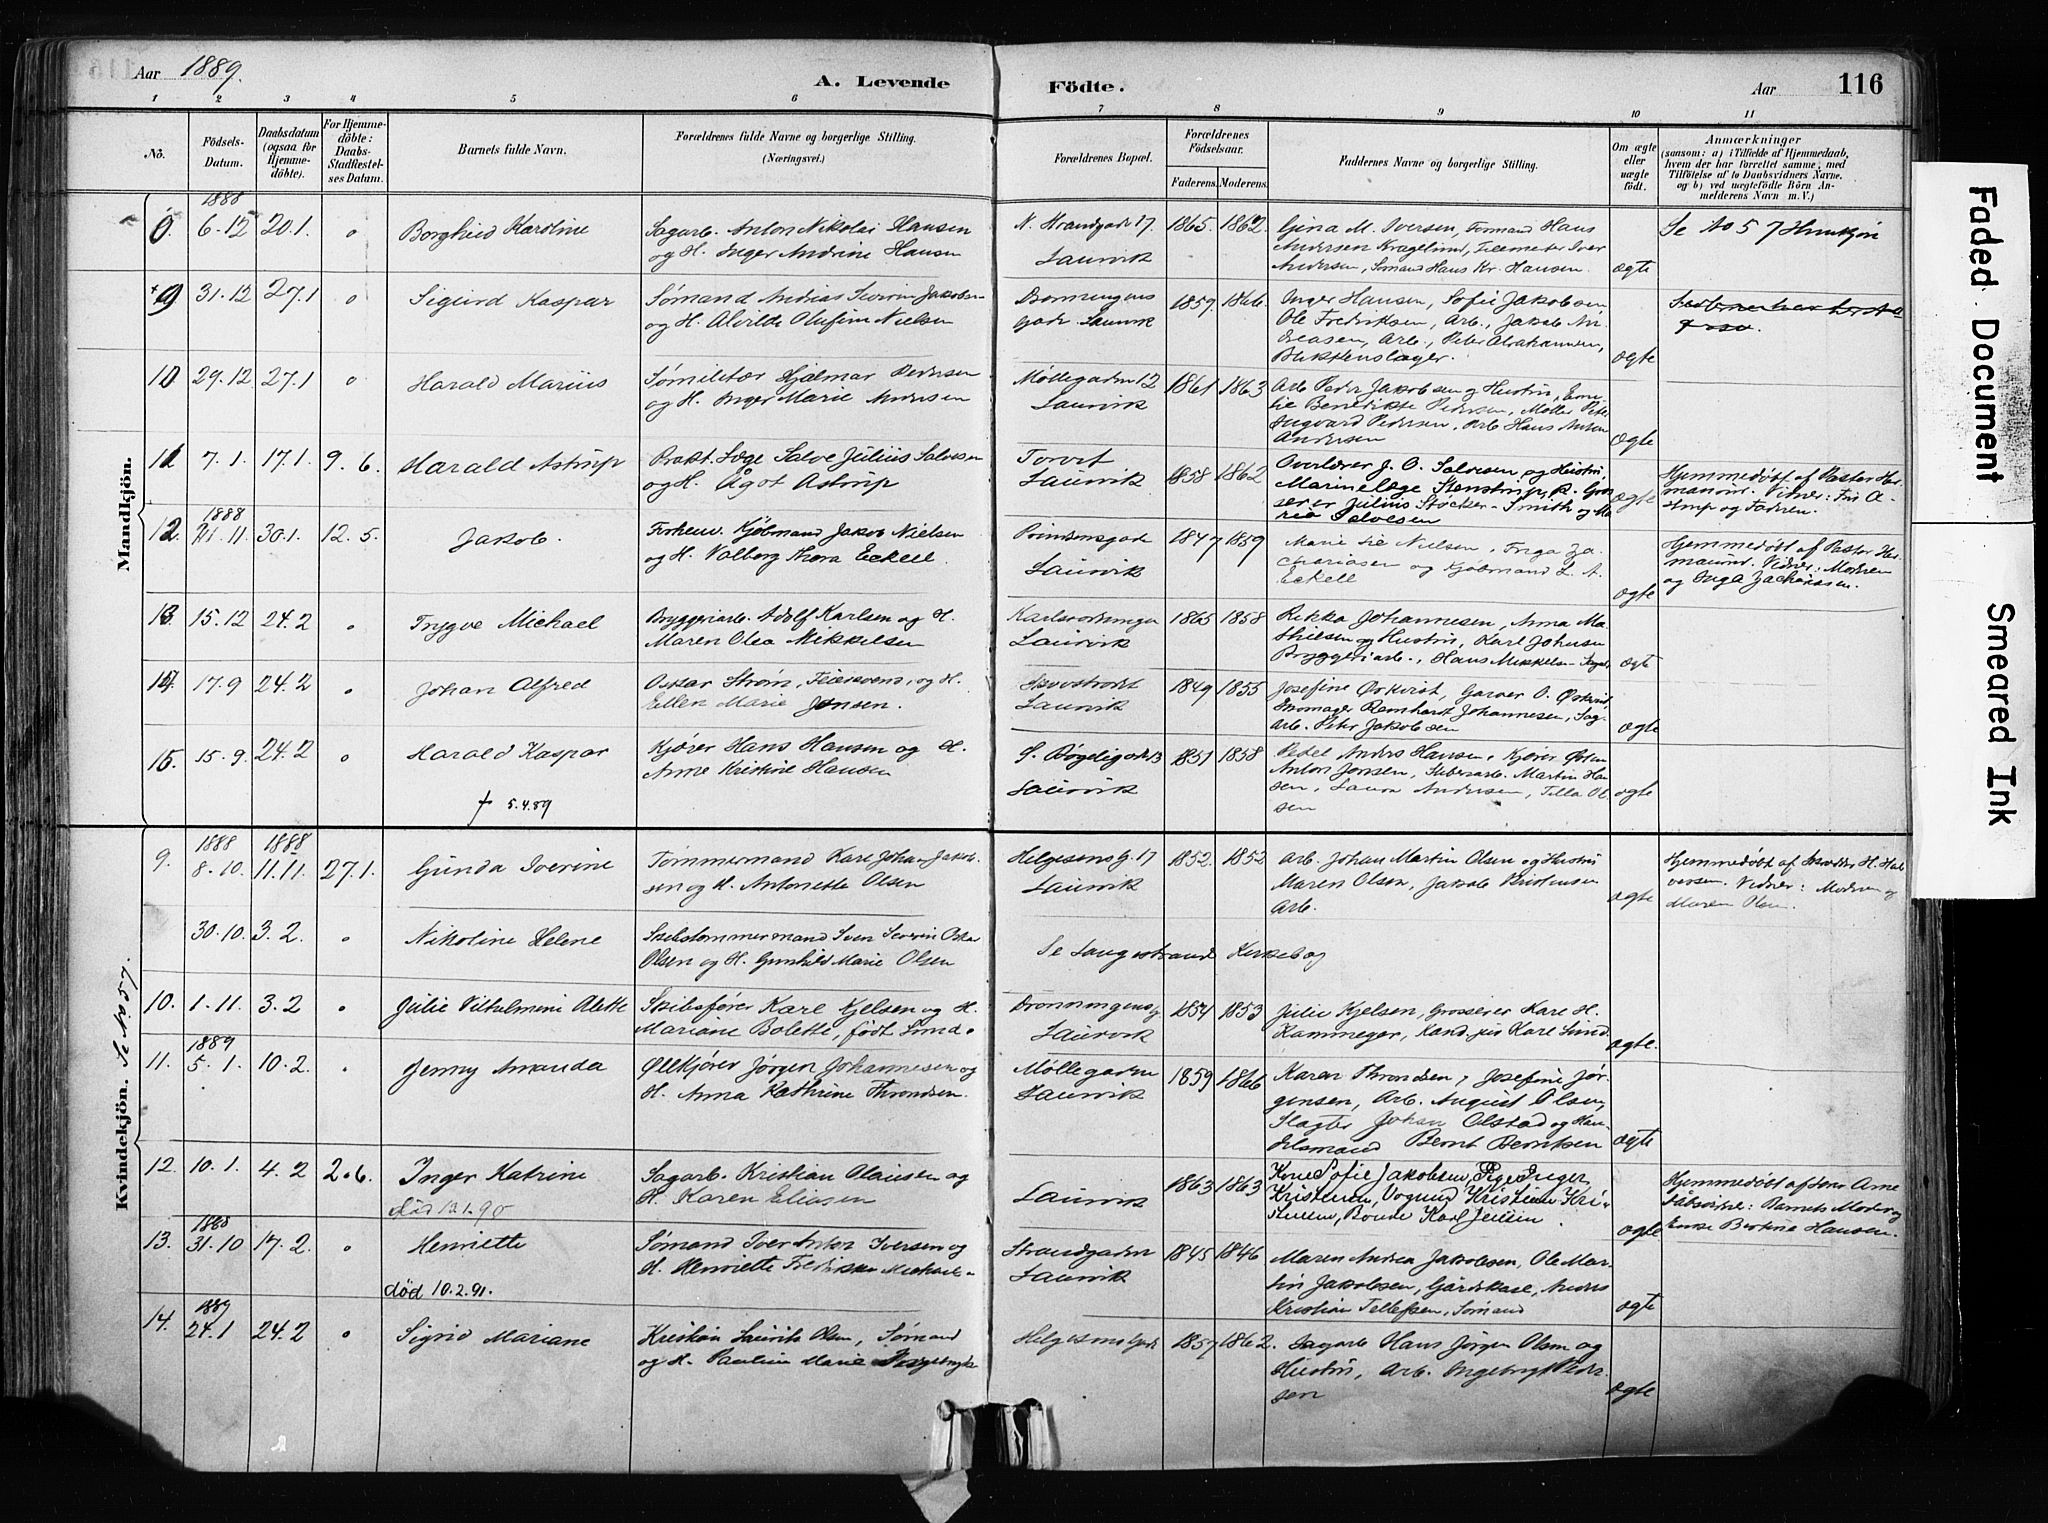 Aar 1889.
A. Levende Födte.
Aar 116
1 2 3 4 5 6 7 8 9 10 11
No.
Födsels-Datum.
Daabsdatum (ogsaa for Hjemme-döbte).
For Hjemme-döbte: Daabs-Stadfestel-ses Datum.
Barnets fulde Navn.
Forældrenes fulde Navne og borgerlige Stilling. (Næringsvei.)
Forældrenes Bopæl.
Forældrenes Födselsaar.
Faderens. Moderens.
Faddernes Navne og borgerlige Stilling.
Om ægte eller uægte födt.
Anmærkninger
(saasom: a) i Tilfælde af Hjemmedaab, hvem der har forrettet samme, med Tilföielse af to Daabsvidners Navne. og b) ved uægtefödte Börn Anmelderens Navn m. V.)
Mandkjön.
1888
6.12 20.1. Borghild Karoline
Sagarb. Anton Nikolai Hansen
og H. Inger Andrine Hansen
N. Strandgade 17
Laurvik
1865. 1862.
Gina M. Iversen, Formand Hans
Andersen Kragelund, Tillemeter Iver
Andersen, Sømand Hans Kr. Hansen.
ægte
Se No 5
9 31.12 27.1 Sigurd Kaspar
Sømand Andreas Severin Jakobsen
og H. Alvilde Olufine Nielsen
Dronningens
gade. Laurvik
1859. 1866.
Inger Hansen, Sofie Jakobsen,
Ole Fredriksen, Arb., Jakob An-
dreasen, Arb., Peter Abrahamsen,
ægte
10 29.12 27.1 Harald Marius
Sømilitær Hjalmar Pedersen
og H. Inger Marie Andersen
Møllegaden 12
Laurvik
1861 1863
Arb Peder Jakobsen og Hustru, Emi-
lie Benedikte Pedersen, Møller Peter
Ingvard Pedersen, Arb Hans Anton
Andersen
ægte
11 7.1. 17.1. 9.6. Harald Astrup
Prakt. Læge Salve Julius Salvesen
og H. Ågot Astrup
Torvet
Laurvik
1858 1862
Overlærer J. O. Salvesen og Hustru
Marinelæge Stenstrup, R. Gros-
serer Julius Støcker-Smith og Ma-
ria Salvesen
ægte
Hjemmedøbt af Pastor Her-
manrud. Vidner: Fru A-
strup og Faderen.
12. 1888
21.11. 30.1. 12.5. Jakob.
Forhenv. Kjøbmand Jakob Nielsen
og H. Valborg Thora Eckell
Prindsensgade
Laurvik
1847 1859
Marie Lie Nielsen, Inga Za-
chariasen og Kjøbmand L. A.
Eckell
ægte
Hjemmedøbt af Pastor Her-
manrud. Vidner: Modren
og Inga Zachariasen.
13. 15.12 24.2 Trygve Michael
Bryggeriarb. Adolf Karlsen og H.
Maren Olea Mikkelsen
Laurvik
1865 1858
Rikka Johannesen, Anna Ma-
thiesen og Hustru, Karl Johnsen
Bryggeriarb., Hans Mikkelsen
ægte
14. 17.9 24.2 Johan Alfred
Oskar Strøm, Feiersvend, og H.
Ellen Marie Jensen.
Laurvik
1849 1855
Josefine Øskvist, Garver O. Øskvist
Skomager Reinhardt Johannesen, Sag-
arb. Peter Jakobsen
ægte
15. 15.9. 24.2 Harald Kaspar
† 5.4.89
Kjører Hans Hansen og H.
Anne Kristine Hansen
S. Bøgeligade 13
Laurvik
1851 1858
Pedel Anders Hansen, Kjører
Anton Jensen, Støberiarb. Martin Han-
sen, Laura Andersen, Tilla Ol-
sen
ægte
Kvindekjön. Se No 57.
9. 1888 1888
8.10. 11.11. 27.1. Gunda Iverine
Tømmermand Karl Johan Jakob-
sen og H. Antonette Olsen
Helgesens G. 17
Laurvik
1852. 1852
Arb. Johan Martin Olsen og Hustru
Maren Olsen, Jakob Kristensen
Arb.
ægte
Hjemmedøbt af H. Hal-
versen. Vidner: Modren og
Maren Olsen.
30.10. 3.2. Nikoline Helene
Skibstømmermand Sven Severin Oskar
Olsen og H. Gunhild Marie Olsen
Se Langestrands Kirkebog
10. 1.11. 3.2 Julie Vilhelmine Alette
Skibsfører Karl Kjelsen og H.
Mariane Bolette, født Lund.
Dronningensg
Laurvik
1854 1853
Julie Kjelsen, Grosserer Karl H.
Kammeger, Kand. jur Karl Lund.
ægte.
11. 1889
5.1. 10.2. Jenny Amanda
Ølkjører Jørgen Johannesen og
H. Anna Kathrine Throndsen.
Møllegaden
Laurvik
1859 1866
Karen Throndsen, Josefine Jør-
gensen, Arb. August Olsen,
Slagter Johan Olstad og Han-
delsmand Bernt Berntsen
ægte
12. 10.1. 4.2 2.6. Inger Katrine
død 13.1.90
Sagarb. Kristian Olausen og
H. Karen Eliasen
Laurvik
1863 1863
Kone Sofie Jakobsen, Pige Inger
Kristensen, Vognmd Kristian Kri-
stensen, Bonde Karl Jensen.
ægte
Hjemmedøbt af Jmr Arne
Dåbsvidne: Barnets Moder og
Enke Bertine Hansen.
13. 1888
31.10 17.2. Henriette
død 10.2.91.
Sømand Iver Anton Iversen og
H. Henriette Fredrikke Michael-
Strandgaden
Laurvik
1845 1846
Maren Andrea Jakobsen, Ole Mar-
tin Jakobsen, Gårdskarl, Anders
Kristian Tellefsen, Sømand
ægte
14. 1889
24.1 24.2 Sigrid Mariane
Kristian Laurits Olsen, Sømand
og H. Pauline Marie Ingebrigts
Helgesens Gade
1857 1862.
Sagarb Hans Jørgen Olsen og
Hustru, Arb. Ingebrigt Peder-
sen
ægte
Faded Document
Smeared Ink